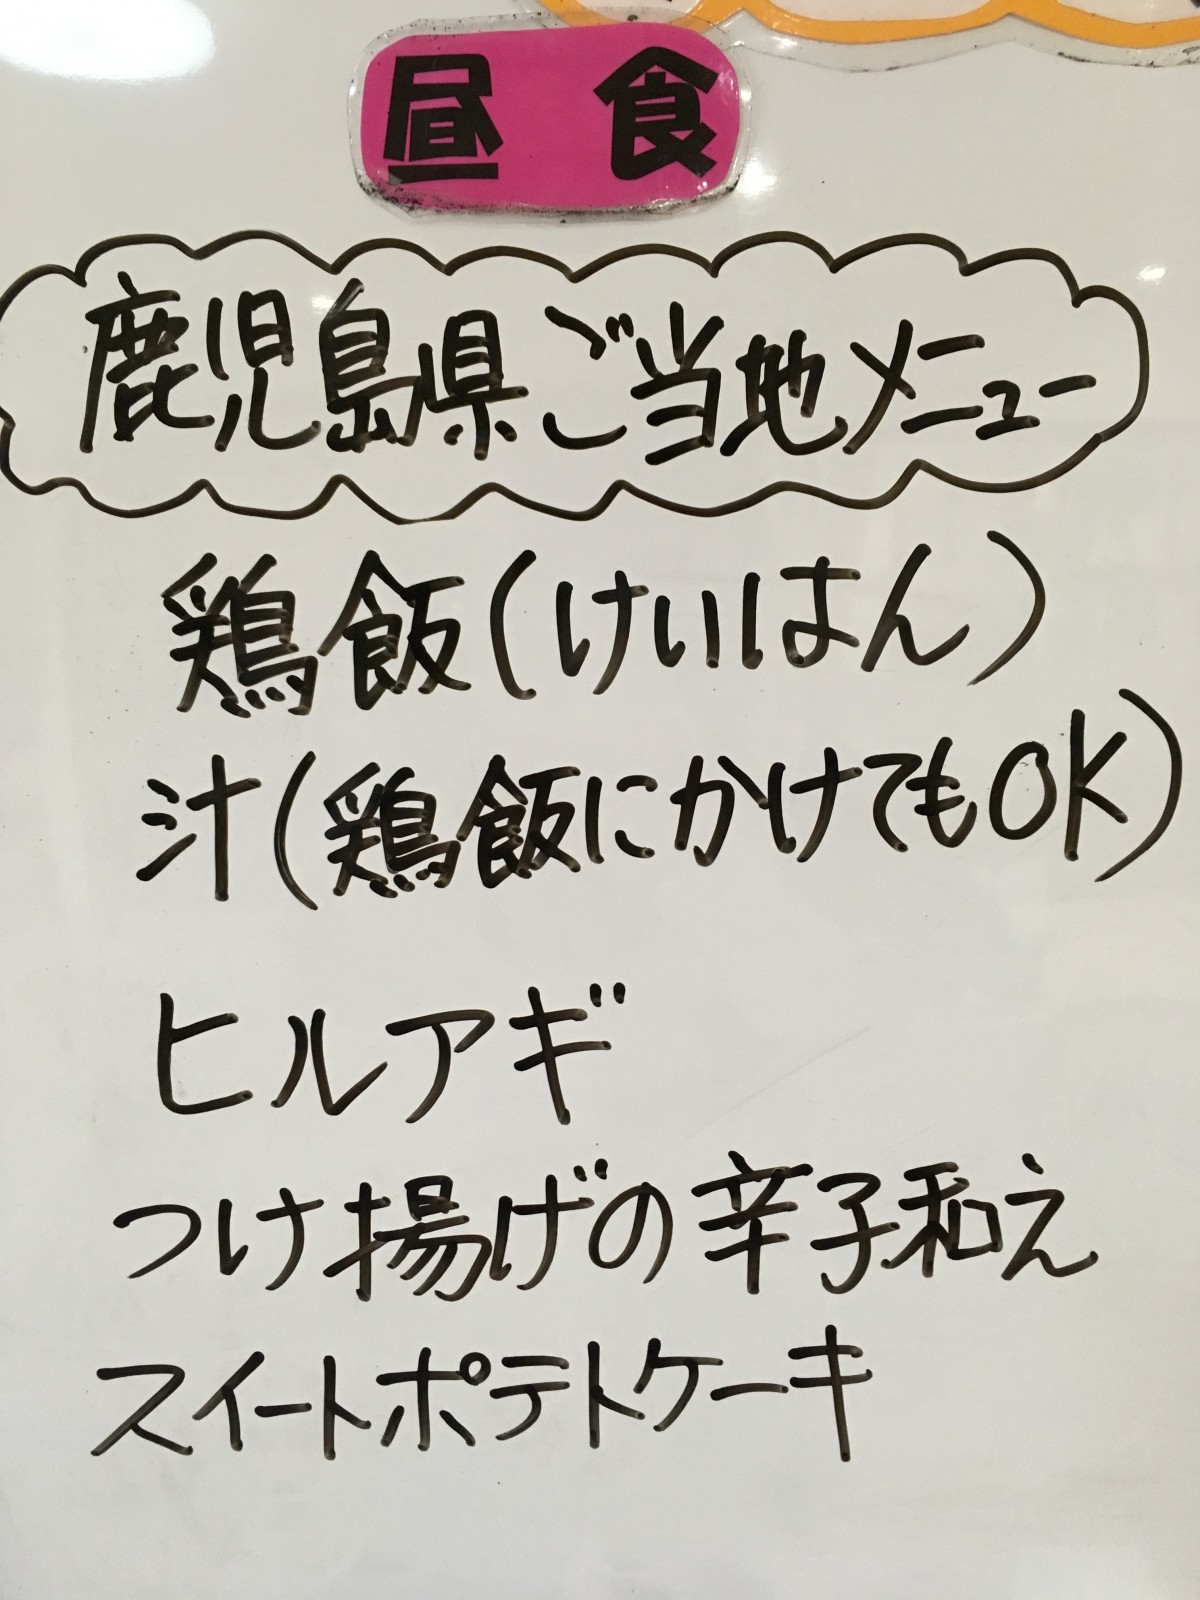 昼食
鹿児島県ご当地メニュー
鶏飯(けいはん)
汁(鶏飯にかけてもOK)
ヒルアギ
つけ揚げの辛子和え
スイートポテトケーキ